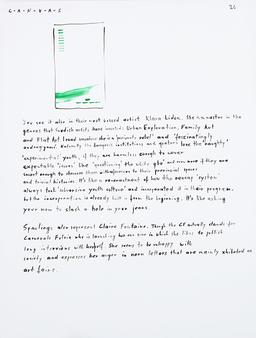 C·A·N·V·A·S 26
You see it also in their most blessed artist Klara Liden. She is a master in the
genres that Swedish artists have invented: Urban Exploration, Family Art
and Flat Art. Loved insiders she is a 'perverts rebel' and 'fascinatingly
androgynous'. Naturally the bourgeois institutions and gestures love the 'naughty',
'experimental' youth, if they are harmless enough to cover
expectable 'issues' like 'questioning' the white cube and even more if they are
smart enough to decorate them with references to their provincial spaces
and trivial histories. It's like a reenactment of how the society 'system'
always took 'subversive youth culture' and incorporated it in their program,
but the incorporation is already built in from the beginning. It's like asking
your mom to slash a hole in your jeans.
Spaulings also represent Claire Fontaine. Though the CF actually stands for
Carnevale Fulvia who is launching her own zine in which she likes to publish
long interviews with herself. She seems to be unhappy with
society and expresses her anger in neon letters that are mainly exhibited on
art fairs.